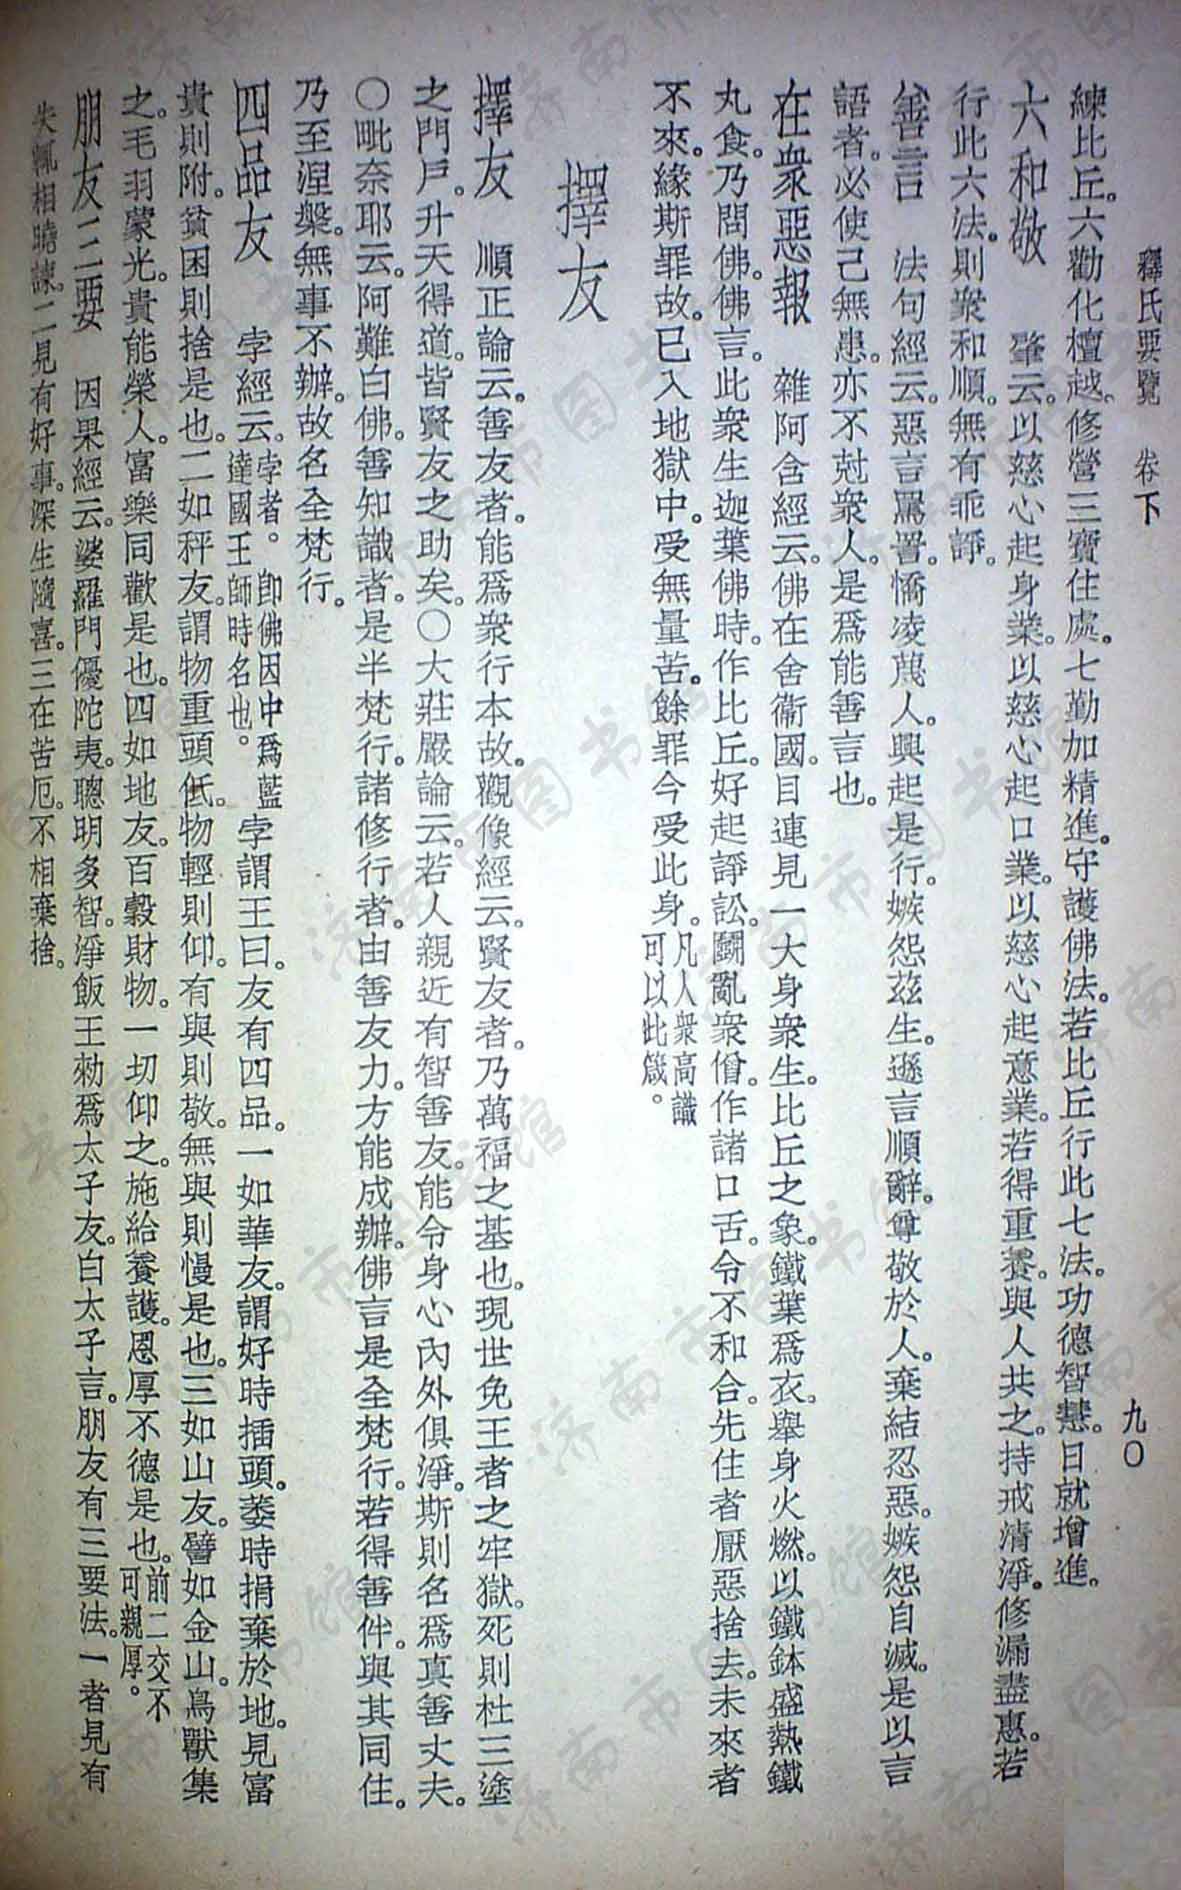 釋氏要覽　卷下　九〇
練比丘。六勸化檀越。修營三寶住處。七勤加精進。守護佛法。若比丘行此七法。功德智慧。日就增進。
六和敬　肇云。以慈心起身業。以慈心起口業。以慈心起意業。若得重養。與人共之。持戒清淨。修漏盡惠。若
行此六法。則衆和順。無有乖諍。
善言　法句經云。惡言罵詈。憍凌蔑人。興起是行。嫉怨茲生。遜言順辭。尊敬於人。棄結忍惡。嫉怨自滅。是以言
語者。必使己無患。亦不尅衆人。是爲能善言也。
在衆惡報　雜阿含經云。佛在舍衞國。目連見一大身衆生。比丘之象。鐵葉爲衣。舉身火燃。以鐵鉢盛熱鐵
丸食。乃問佛。佛言。此衆生迦葉佛時。作比丘。好起諍訟。鬭亂衆僧。作諸口舌。令不和合。先住者厭惡捨去。未來者
不來。緣斯罪故。已入地獄中。受無量苦。餘罪今受此身。凡人衆高識可以此箴。
擇友
擇友　順正論云。善友者。能爲衆行本故。觀像經云。賢友者。乃萬福之基也。現世免王者之牢獄。死則杜三塗
之門戶。升天得道。皆賢友之助矣。〇大莊嚴論云。若人親近有智善友。能令身心內外俱淨。斯則名爲真善丈夫。
〇毗奈耶云。阿難白佛。善知識者。是半梵行。諸修行者。由善友力。方能成辦。佛言是全梵行。若得善伴。與其同住。
乃至涅槃。無事不辦。故名全梵行。
四品友　孛經云。孛者。卽佛因中爲藍達國王師時名也。孛謂王曰。友有四品。一如華友。謂好時插頭。萎時捐棄於地。見富
貴則附。貧困則捨是也。二如秤友。謂物重頭低。物輕則仰。有與則敬。無與則慢是也。三如山友。譬如金山。鳥獸集
之。毛羽蒙光。貴能榮人。富樂同歡是也。四如地友。百穀財物。一切仰之。施給養護。恩厚不德是也。前二交不可親厚。
朋友三要　因果經云。婆羅門優陀夷。聰明多智。淨飯王勑爲太子友。白太子言。朋友有三要法。一者見有
失輒相曉諫。二見有好事。深生隨喜。三在苦厄。不相棄捨。